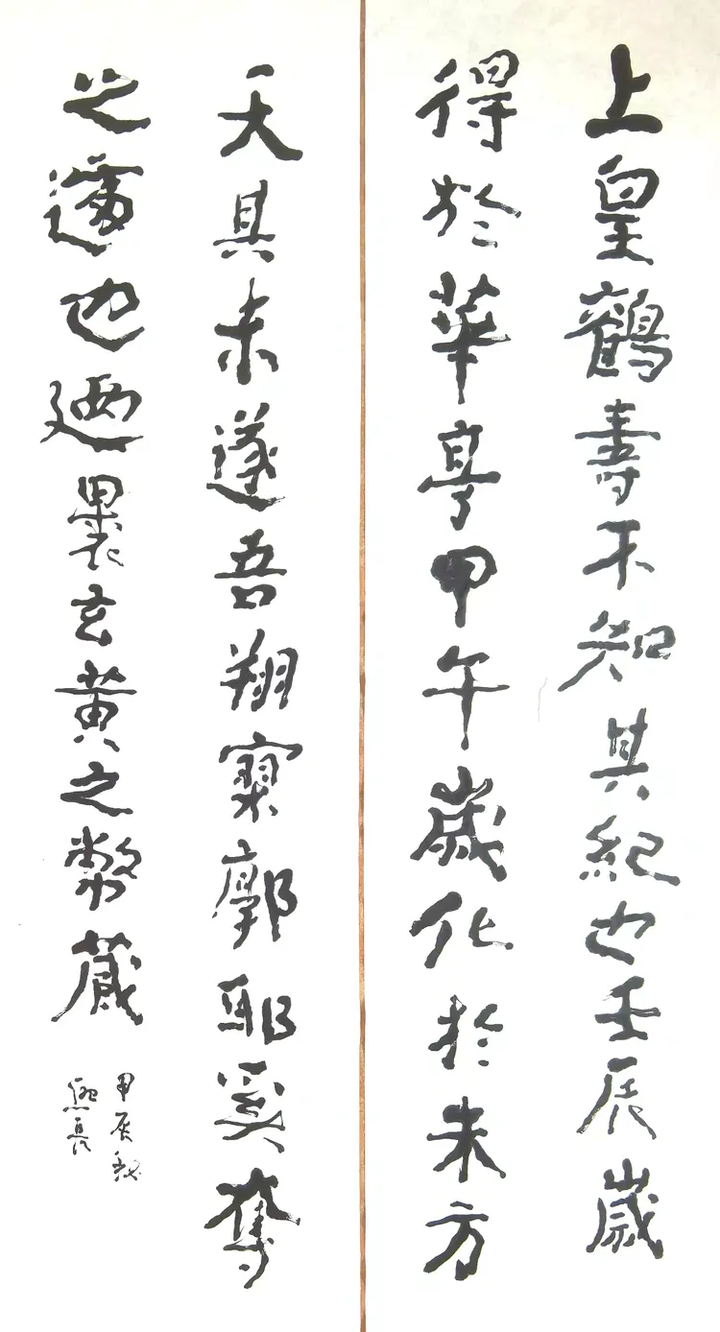 上皇鶴壽不知其紀也壬辰歲
得於華亭甲午歲化於朱方
天其未遂吾翔寥廓耶奚奪
之遽也迺裹玄黄之幣藏
甲辰秋